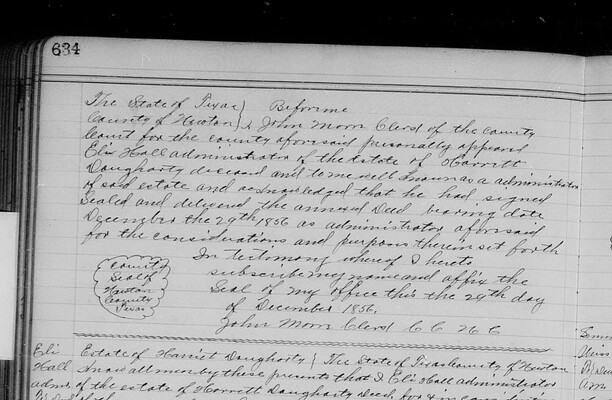 634
The State of Texas } Before me
County of Newton } I, John Moore Clerk of the County
Court for the county aforesaid personally appeared
Eli Hall administrator of the Estate of Harriett
Daugharty deceased and to me well known as a administrator
of said estate and acknowledged that he had signed
Sealed and delivered the annexed Deed bearing date
December the 29th 1856 as administrator aforesaid
for the considerations and purposes therein set forth
In testimony whereof I hereto
subscribe my name and affix the
Seal of my office this the 29th day
of December 1856.
John Moore Clerk C C N C
County
Seal of
Newton
County
Texas
Eli Estate of Harriet Daugharty } The State of Texas County of Newton
Hall Know all men by these presents that I Eli Hall administrator
admr. of the estate of Harriett Daugharty Decd, for & in